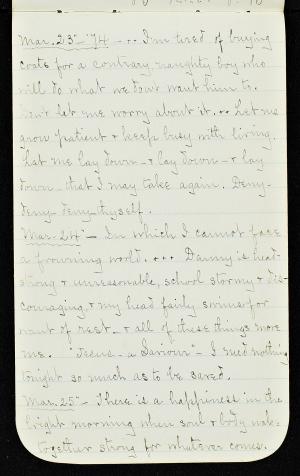 Mar. 23 - '74 - .. I'm tired of buying
coats for a contrary, naughty boy who
will do what we don't want him to.
Don't let me worry about it. .. Let me
grow patient & keep busy with living.
Let me lay down - & lay down - & lay
down - that I may take again. Deny-
deny - deny thyself.
Mar. 24 - In which I cannot face
a frowning world. ... Danny is head-
strong & unreasonable, school stormy & dis-
couraging, & my head fairly swims for
want of rest - & all of these things move
me. "Jesus - a Saviour" - I need nothing
tonight so much as to be saved.
Mar. 25 - There is a happiness in the
bright morning when soul & body wake
together strong for whatever comes.